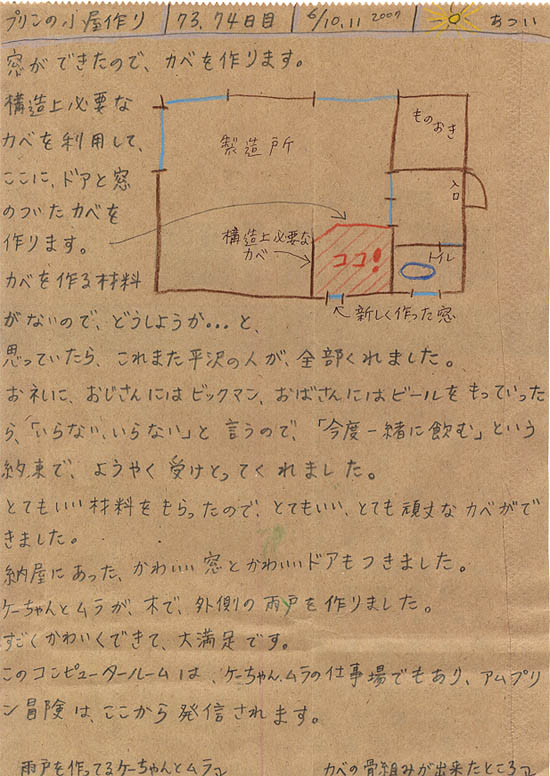 プリンの小屋作り 73,74日目 6/10,11 2009 あつい
窓ができたので、カベを作ります。
構造上必要な
カベを利用して、
ここに、ドアと窓
のついたカベを
作ります。
カベを作る材料
がないので、どうしようか...と、
製造所
ものおき
入口
構造上必要な
カベ
ココ!
トイレ
新しく作った窓
思っていたら、これまた平沢の人が、全部くれました。
お礼に、おじさんにはビックマン、おばさんにはビールをもっていった
ら、「いらない、いらない」と言うので、「今度一緒に飲む」という
約束で、ようやく受けとってくれました。
とてもいい材料をもらったので、とてもいい、とても頑丈なカベがで
きました。
納屋にあった、かわいい窓とかわいいドアもつきました。
ケーちゃんとムラが、木で、外側の雨戸を作りました。
すごくかわいくできて、大満足です。
このコンピュータールームは、ケーちゃん、ムラの仕事場でもあり、アムプリ
ン冒険は、ここから発信されます。
雨戸を作ってるケーちゃんとムラ
カベの骨組みが出来たところ